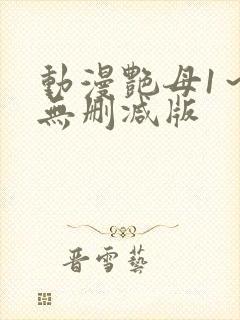 動漫艷母1～
無刪減版
晋雪藝